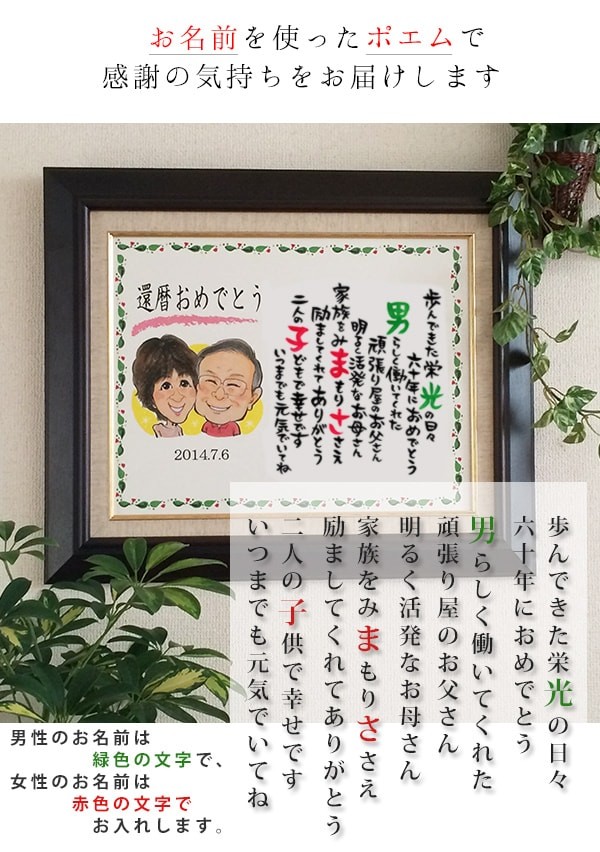 お名前を使ったポエムで
感謝の気持ちをお届けします
還暦おめでとう
2014.7.6
歩んできた栄光の日々
六十年におめでとう
男らしく働いてくれた
頑張り屋のお父さん
明るく活発なお母さん
家族をみまもりささえ
励ましてくれてありがとう
二人の子どもで幸せです
いつまでも元気でいてね
歩んできた栄光の日々
六十年におめでとう
男らしく働いてくれた
頑張り屋のお父さん
明るく活発なお母さん
家族をみまもりささえ
励ましてくれてありがとう
二人の子供で幸せです
いつまでも元気でいてね
男性のお名前は
緑色の文字で、
女性のお名前は
赤色の文字で
お入れします。